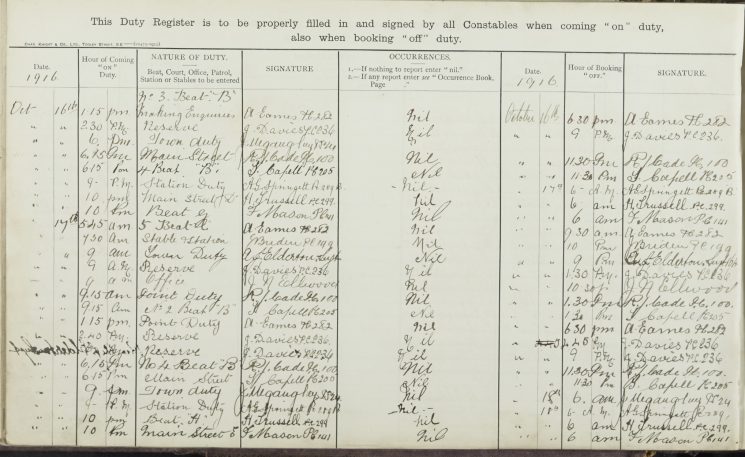 This Duty Register is to be properly filled in and signed by all Constables when coming "on" duty,
also when booking "off" duty.
Date. 1916 Hour of Coming "on" Duty. NATURE OF DUTY. Beat, Court, Office, Patrol, Station or Stables to be entered SIGNATURE OCCURRENCES. 1.—If nothing to report enter "nil." 2.—If any report enter see "Occurrence Book, Page Date. 1916 Hour of Booking "OFF." SIGNATURE.
No 3. Beat "B"
Oct 16th 1 15 pm making Enquiries A Eames Pc 282 Nil October 16th 6 30 pm A Eames Pc 282
" " 2.30 P.M. Reserve J Davies PC 236 Nil " " 9 P.M. J Davies PC 236.
" " 6 pm Town duty
" " 6.15 Pm Main Street R J Cade Pc. 100 Nil " " 11.30 Pm R J Cade Pc. 100
" " 6 15 Pm 4 Beat "B" J Capell Pc 205 Nil " " 11 30 Pm J Capell Pc 205
" " 9 P.M. Station Duty A G Springett Pc 209 B - Nil - " 17th 6 A.M. A G Springett Pc 209 B
" " 10 pm Main Street H Trussell Pc 299 Nil " " 6 am H. Trussell Pc 299.
" " 10 pm Beat G F Mason Pc 141 Nil " " 6 am F Mason Pc 141
" 17th 5 45 am 5 Beat A Eames Pc 282 Nil " " 9 30 am A Eames Pc 282
" " 7 30 Am Stable & Station J Briden PC 199 Nil " " 10 Pm J Briden PC 199
" " 9 am Town Duty Elderton Nil " " 9 Pm Elderton
" " 9 A.M. Reserve J Davies PC 236 Nil " " 1.30 P.M. J Davies PC 236
" " 9 am Office J N Ellwood Nil " " 10 J N Ellwood
" " 9.15 am Point Duty R J Cade Pc. 100 Nil " " 1.30 Pm R J Cade Pc. 100.
" " 9 15 Am No 2 Beat B J Capell Pc 205 Nil " " 1 30 Pm J Capell Pc 205
" " 1 15 pm Point Duty A Eames Pc 282 Nil " " 6 30 pm A Eames Pc 282
" " 2.40 P.M. Reserve J Davies PC 236. Nil " " 2.45 J Davies PC 236
Reserve J Davies PC 236 Nil " " 9 P.M. J Davies PC 236
" " 6.15 Pm No 4 Beat B R J Cade Pc. 100 Nil " " 11.30 Pm R J Cade Pc. 100.
" " 6.15 Pm Main Street J Capell Pc 205 Nil " " 11 30 Pm J Capell Pc 205
" " 9 pm Town duty Nil " 18th 6. am
" " 9 P.M. Station Duty A G Springett Pc 209 B - Nil - " 18th 6 A.M. A G Springett Pc 209.
" " 10 pm Beat "H" H Trussell Pc 299 Nil " " 6 am H. Trussell Pc 299.
" " 10 pm Main Street F Mason Pc 141 Nil " " 6 am F Mason Pc 141